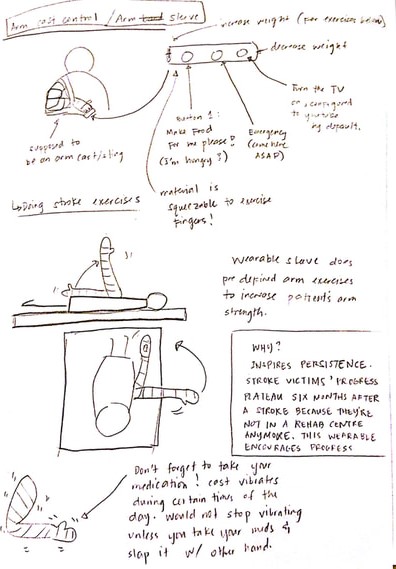 Arm cast control / Arm sleeve
increase weight (per exercises below)
decrease weight
Button 1:
Make Food
For me please!
(I'm hungry!)
Emergency
(come here
ASAP)
Turn the TV
on, configured
to youtube
by default.
supposed to
be an arm cast/sling
material is
squeezable to exercise
fingers!
Doing stroke exercises
Wearable sleeve does
pre defined arm exercises
to increase patient's arm
strength.
WHY?
INSPIRES PERSISTENCE.
STROKE VICTIMS' PROGRESS
PLATEAU SIX MONTHS AFTER
A STROKE BECAUSE THEY'RE
NOT IN A REHAB CENTRE
ANYMORE. THIS WEARABLE
ENCOURAGES PROGRESS
Don't forget to take your
medication! cast vibrates
during certain times of the
day. would not stop vibrating
unless you take your meds &
slap it w/ other hand.